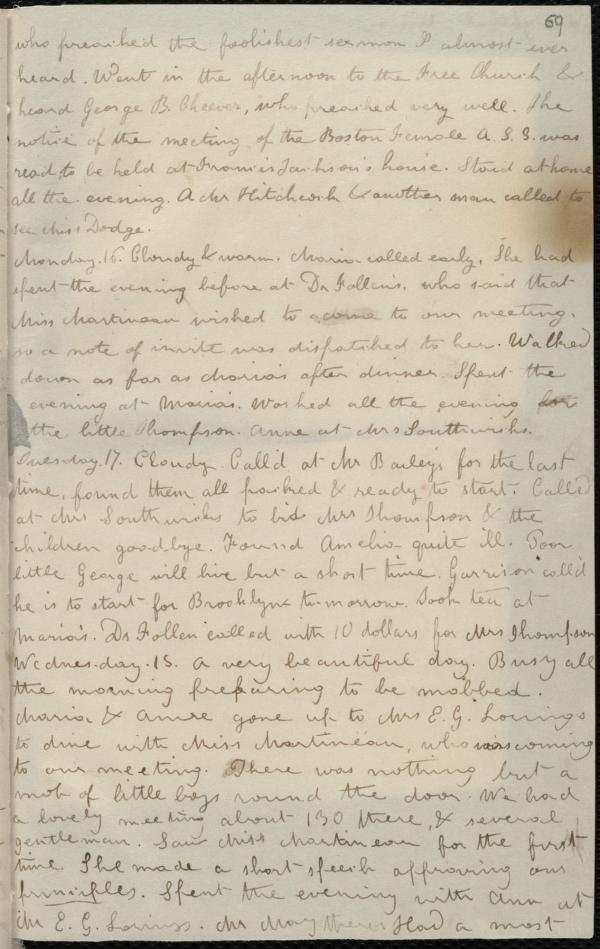 69
who preached the foolishest sermon I almost ever
heard. Went in the afternoon to the Free Church &
heard George B. Cheever, who preached very well. The
notice of the meeting of the Boston Female A. S. S. was
read, to be held at Francis Jackson's house. Staid at home
all the evening. A Mr Hitchcock & another man called to
see Miss Dodge.
Monday. 16. Cloudy & warm. Maria called early. She had
spent the evening before at Dr Follen's, who said that
Miss Martineau wished to come to our meeting,
so a note of invite was dispatched to her. Walked
down as far as Maria's after dinner. Spent the
evening at Maria's. Worked all the evening for
the little Thompson. Anne at Mrs Southwicks.
Tuesday. 17. Cloudy. Call'd at Mr Bailey's for the last
time, found them all packed & ready to start. Called
at Mrs Southwicks to bid Mrs Thompson & the
children good-bye. Found Amelia quite ill. Poor
little George will live but a short time. Garrison call'd
he is to start for Brooklyn to-morrow. Took tea at
Maria's. Dr Follen called with 10 dollars for Mrs Thompson
Wednesday. 18. A very beautiful day. Busy all
the morning preparing to be mobbed.
Maria & Anne gone up to Mrs E. G. Lorings
to dine with Miss Martineau, who was coming
to our meeting. There was nothing but a
mob of little boys round the door. We had
a lovely meeting about 130 there, & several
gentleman. Saw Miss Martineau for the first
time. She made a short speech approving our
principles. Spent the evening with Ann at
Mr E. G. Lorings. Mr May there. Had a most